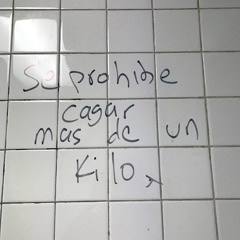 Se prohibe
cagar
mas de un
Kilo.